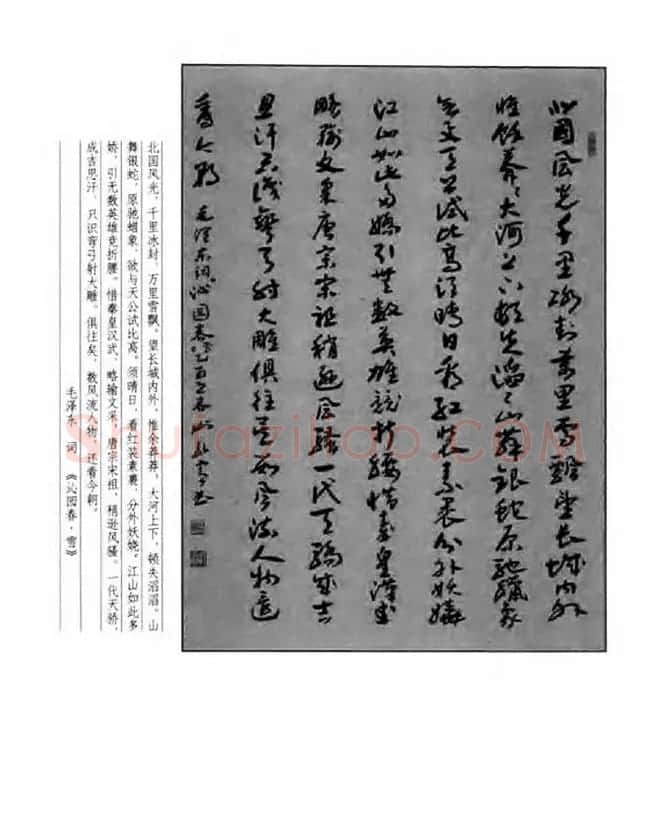 北國風光千里冰封萬里雪飄望長城内外
惟餘莽莽大河上下頓失滔滔山舞銀蛇原馳蠟象
欲与天公試比高須晴日看紅裝素裹分外妖嬈
江山如此多嬌引無数英雄競折腰惜秦皇漢武
略輸文采唐宗宋祖稍遜風騷一代天驕成吉
思汗只識彎弓射大雕俱往矣数風流人物還
看今朝 毛澤東詞沁園春雪乙酉之春
北国风光，千里冰封，万里雪飘。望长城内外，惟余莽莽，大河上下，顿失滔滔。山
舞银蛇，原驰蜡象，欲与天公试比高。须晴日，看红装素裹，分外妖娆。江山如此多
娇，引无数英雄竞折腰。惜秦皇汉武，略输文采，唐宗宋祖，稍逊风骚。一代天骄，
成吉思汗，只识弯弓射大雕。俱往矣，数风流人物，还看今朝。
毛泽东 词 《沁园春·雪》
Shufazihao.com